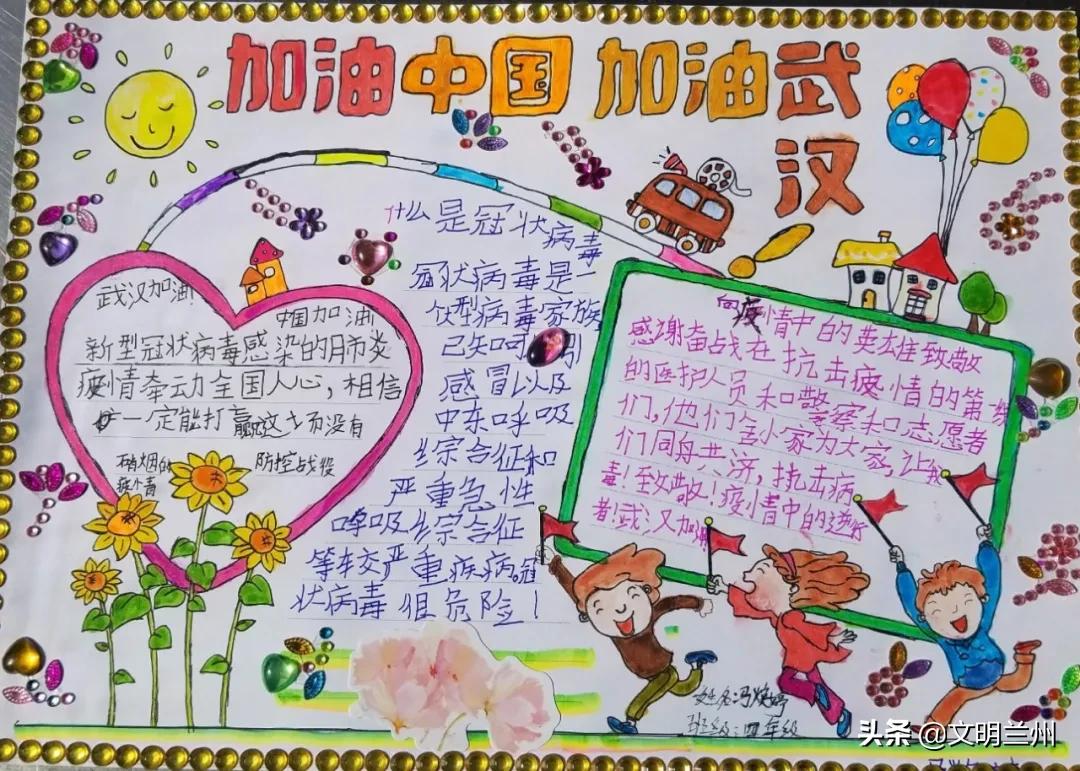 加油中国 加油武
汉
什么是冠状病毒
冠状病毒是一
个大型病毒家族
已知可 引
感冒以及
中东呼吸
综合征和
严重急性
呼吸综合征
等较严重疾病。冠
状病毒很危险！
武汉加油
中国加油
新型冠状病毒感染的肺炎
疫情牵动全国人心，相信
一定能打赢这场没有
硝烟的 防控战役
向疫情中的英雄致敬
感谢奋战在抗击疫情的第一线
的医护人员和警察和志愿者
们，他们舍小家为大家，让我
们同舟共济，抗击病
毒！致敬！疫情中的逆行
者！武汉加油
姓名：冯 婷
班级：四年级
头条 @文明兰州